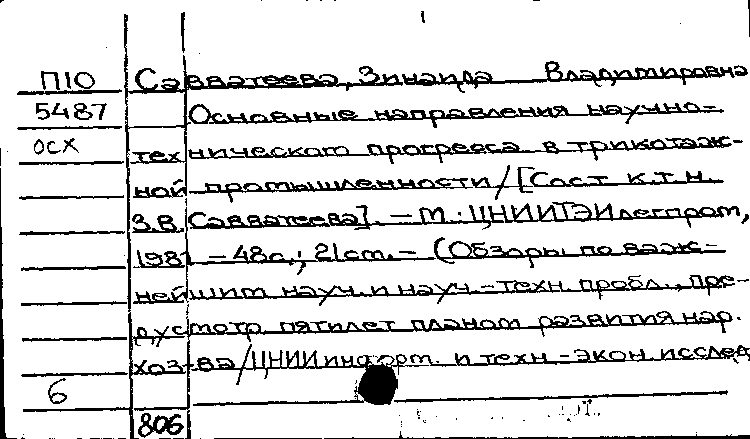 П10 Савватеева, Зинаида Владимировна
5487 Основные направления научно-
осх технического прогресса в трикотаж-
ной промышленности/[Сост. к.т.н.
З.В. Савватеева]. – М.: ЦНИИТЭИлегпром,
1981 – 48с.; 21см. – (Обзоры по важ-
нейшим науч. и науч.-техн. пробл., пре-
дусмотр. пятилет. планом развития нар.
хоз-ва/ЦНИИ информ. и техн.-экон. исслед
6
806